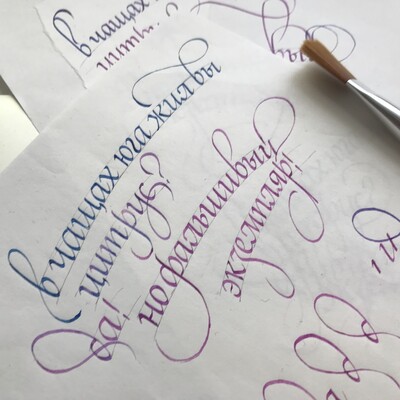 в чащах
в чащах юга жил бы
цитрус?
да!
но фальшивый
экземпляр!